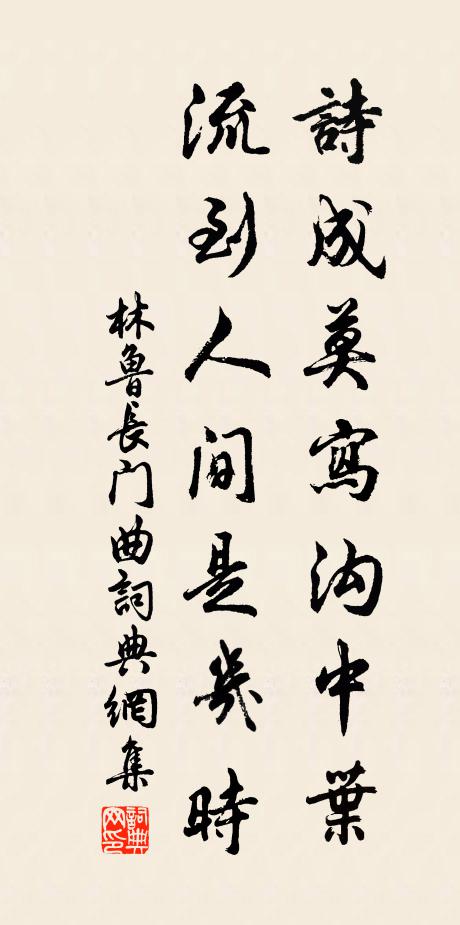 詩成莫寫沟中葉
流到人间是幾時
林魯長门曲詞典網集
詞典网印